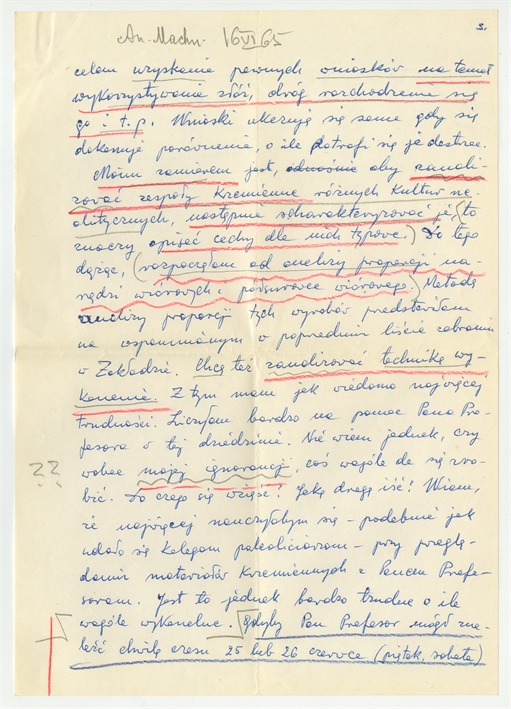 An. Machn. 16 VI 65
3.
celem uzyskania pewnych wniosków na temat
wykorzystywania złóż, dróg rozchodzenia się
go i t.p. Wnioski ukazują się same gdy się
dokonuje porównania, o ile potrafi się je dostrzec.
Moim zamiarem jest, aby zanali-
zować zespoły krzemienne różnych kultur ne-
olitycznych, następnie scharakteryzować je (to
znaczy opisać cechy dla nich typowe.) Do tego
dążąc, (rozpocząłam od analizy proporcji na-
rzędzi wiórowych i półsurowca wiórowego.) Metodę
analizy proporcji tych wyrobów przedstawiłam
na wspomnianym w poprzednim liście zebraniu
w Zakładzie. Chcę też zanalizować technikę wy-
konania. Z tym mam jak wiadomo najwięcej
trudności. Liczyłam bardzo na pomoc Pana Pro-
fesora w tej dziedzinie. Nie wiem jednak, czy
wobec mojej ignorancji, coś wogóle da się zro-
?? bić. Do czego się wziąść? Jaką drogą iść? Wiem,
że najwięcej nauczyłabym się – podobnie jak
udało się kolegom paleoliciarzom – przy przeglą-
daniu materiałów krzemiennych z Panem Profe-
sorem. Jest to jednak bardzo trudne o ile
wogóle wykonalne. Gdyby Pan Profesor mógł zna-
leźć chwilę czasu 25 lub 26 czerwca (piątek, sobota)